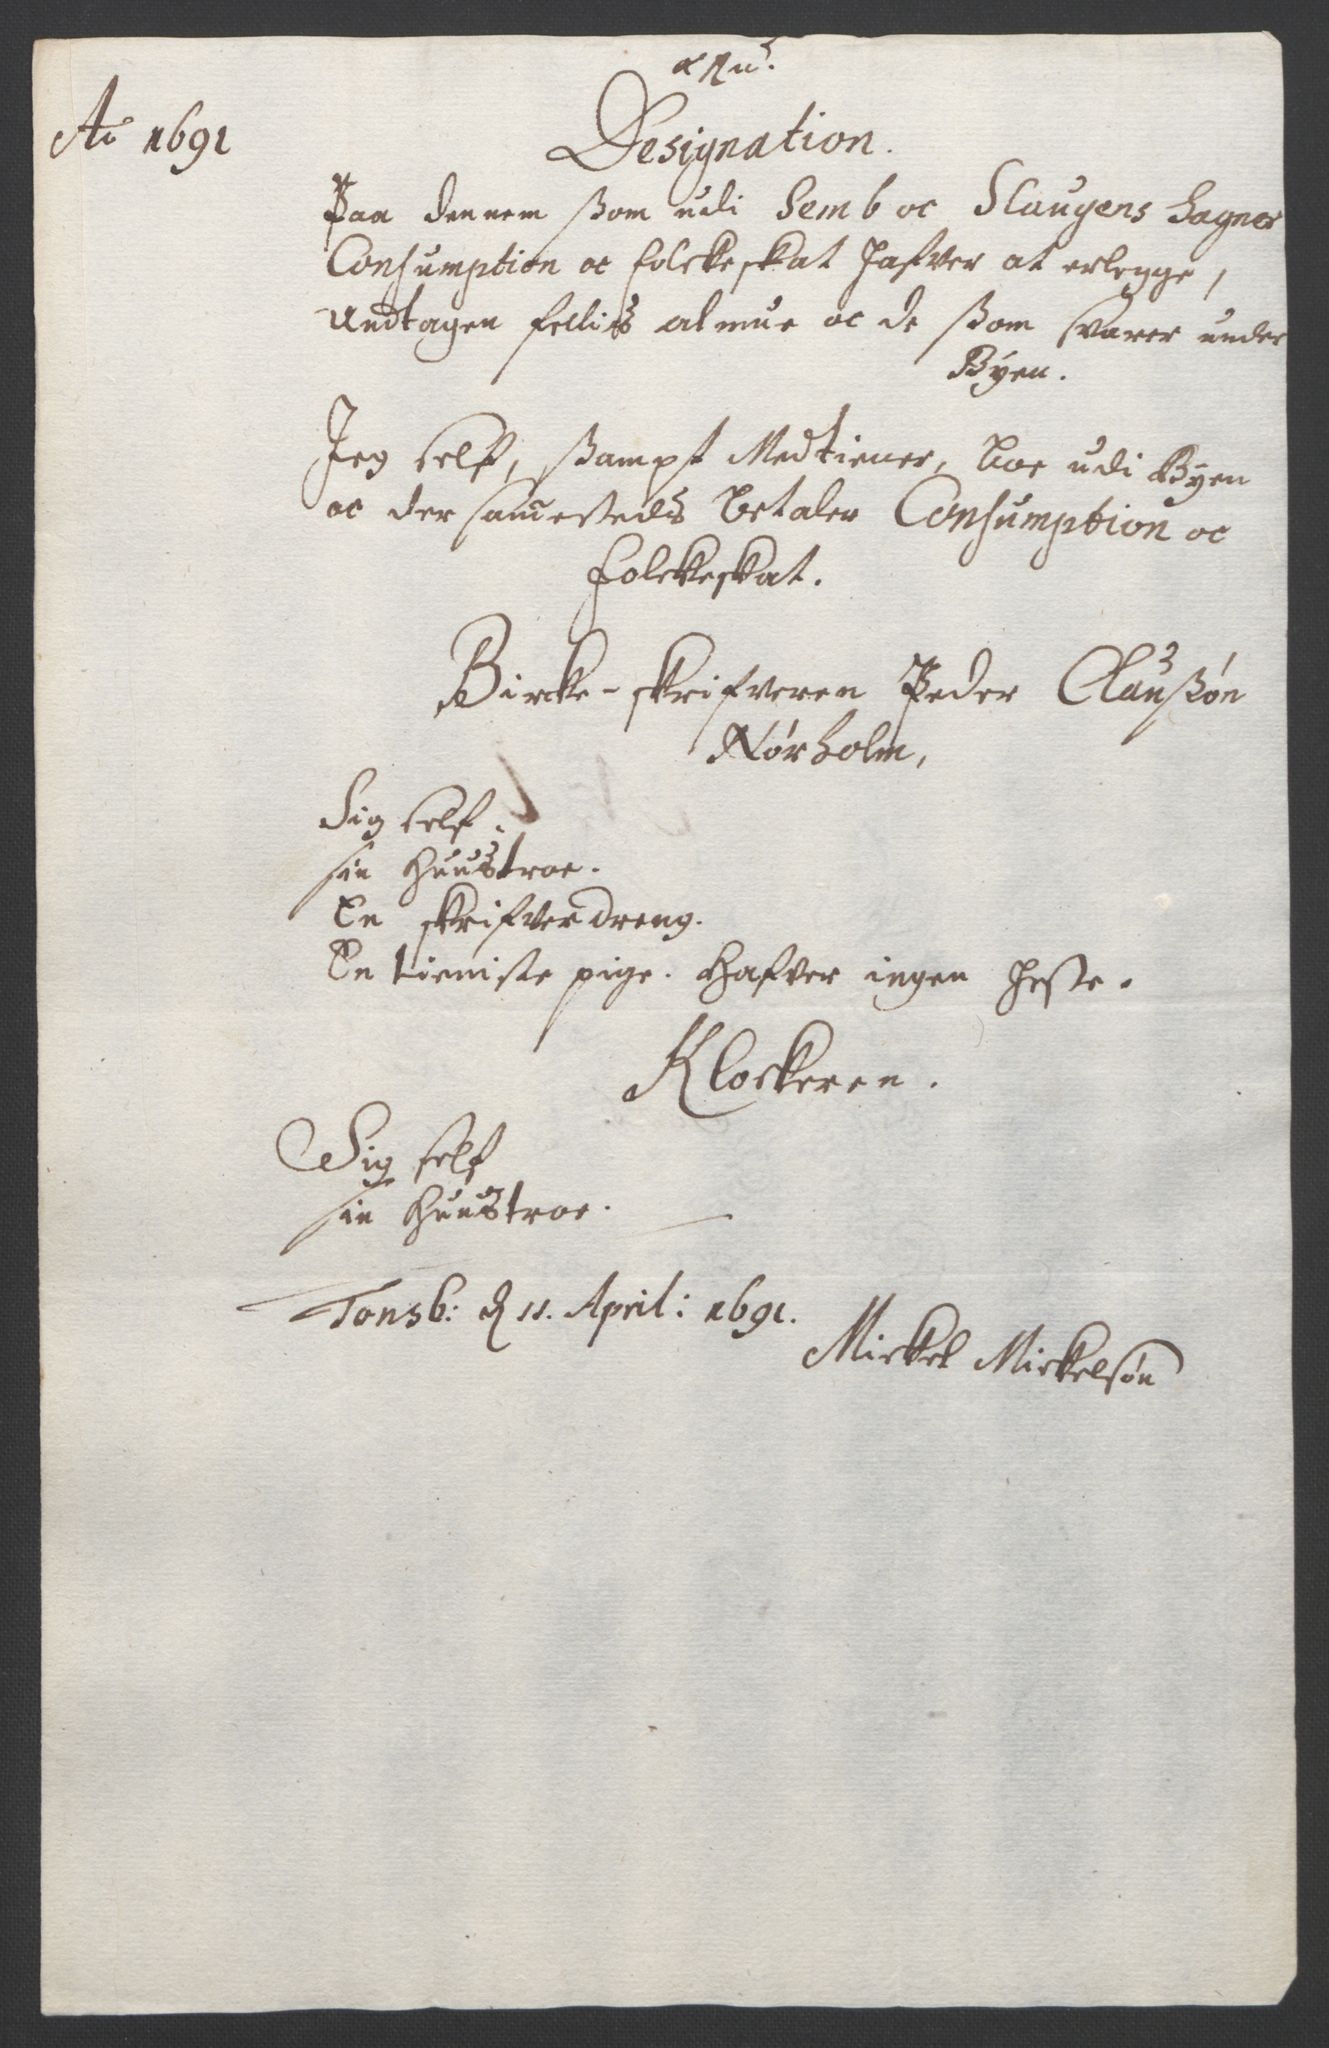 Ao 1691
Designation.
Paa dennem ssom udi Semb oc Slaugens Sagner
Consumption oc folckeskat hafver at erlegge,
Undtagen fellis almue oc de ssom svarer under
Byen.
Jeg self, ssampt Medtiener, boe udi Byen
oc der sam̄esteds betaler Consumption oc
folckeskat.
Bircke-skrifveren Peder Claussøn
Nørholm,
Sig self.
sin Huustroe.
En skrifverdreng.
En tieniste pige. Hafver ingen heste.
Klockeren.
Sig self
sin Huustroe.
Tonsb: d 11. April: 1691.
Mickel Mickelsøn